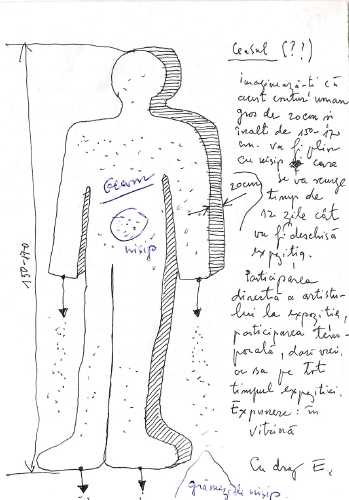 Ceasul (??)
imaginează-ți că
acest contur uman
gros de 20cm și
înalt de 150-170
cm. va fi plin
cu nisip care
se va scurge
timp de
12 zile cât
va fi deschisă
expoziția.
Participarea
directă a artistu-
lui la expoziție,
participarea tem-
porală, dacă vrei,
pe tot
timpul expoziției.
Expunere: în
vitrină
Cu drag E.
150-170
20cm
Geam
nisip
grămezi de nisip